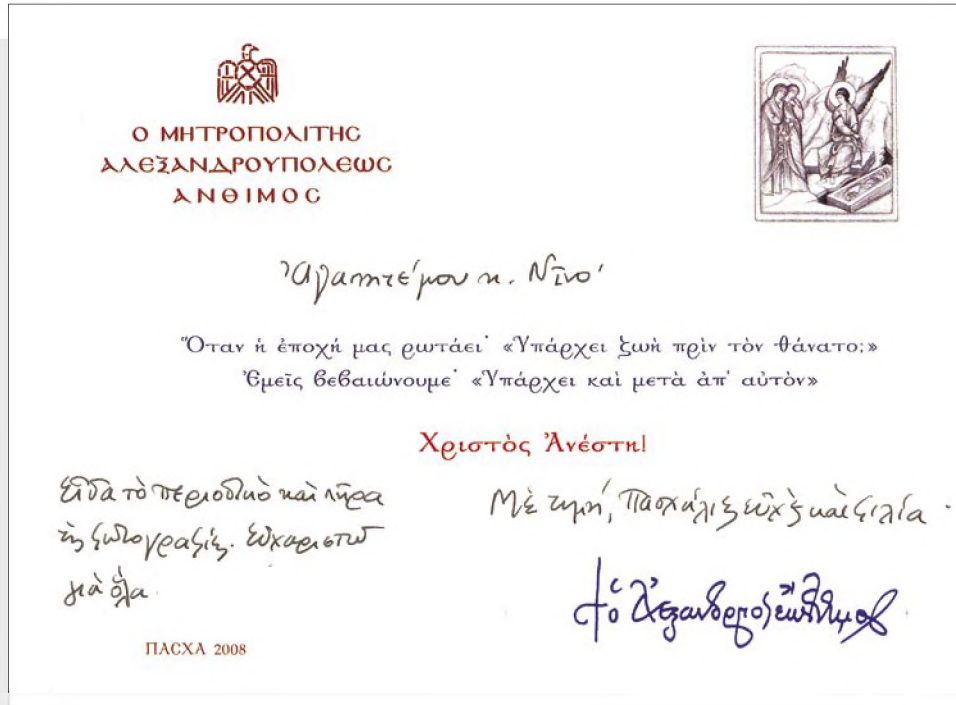 Ο ΜΗΤΡΟΠΟΛΙΤΗΣ
ΑΛΕΞΑΝΔΡΟΥΠΟΛΕΩΣ
ΑΝΘΙΜΟΣ
Ἀγαπητέ μου κ. Νῖνο
Ὅταν ἡ ἐποχή μας ρωτάει· «Ὑπάρχει ζωὴ πρὶν τὸν θάνατο;»
Ἐμεῖς βεβαιώνουμε· «Ὑπάρχει καὶ μετὰ ἀπ' αὐτόν»
Χριστὸς Ἀνέστη!
Εἶδα τὸ περιοδικὸ καὶ πῆρα
τὶς φωτογραφίες. Εὐχαριστῶ
γιὰ ὅλα.
Μὲ τιμή, Πασχάλιες εὐχὲς καὶ φιλία.
† ὁ Ἀλεξανδρουπόλεως Ἄνθιμος
ΠΑΣΧΑ 2008